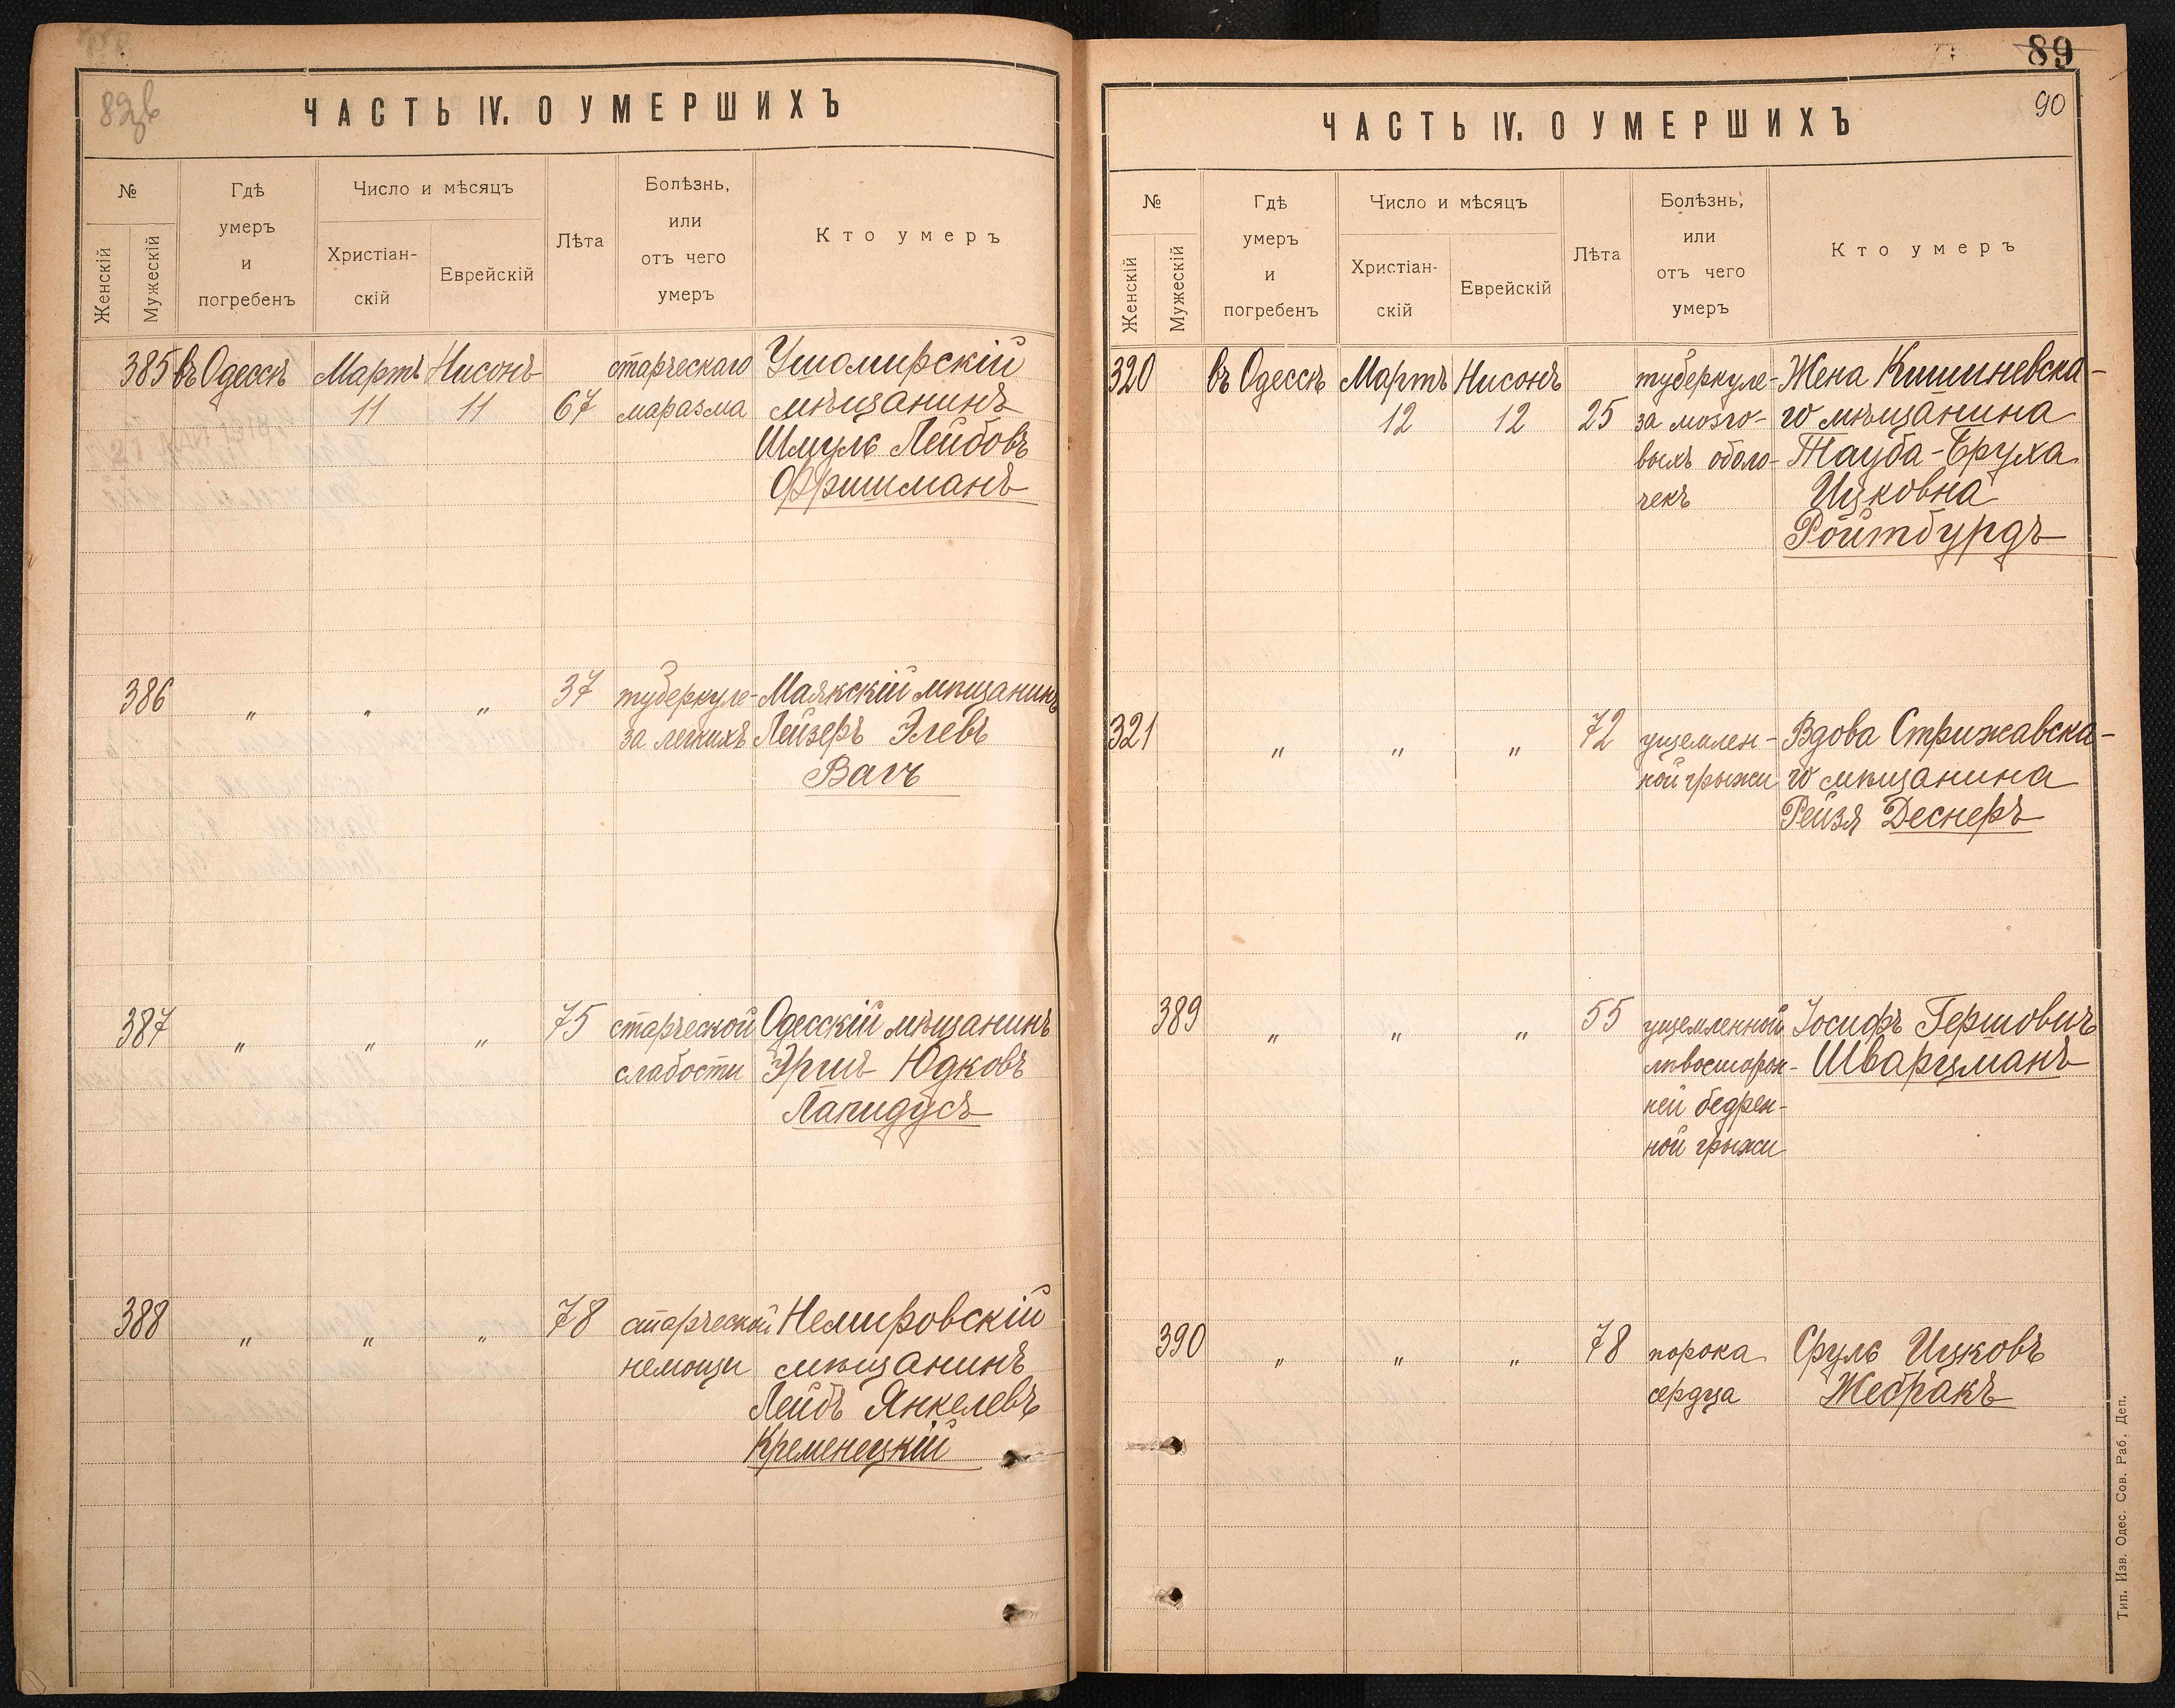 ЧАСТЬ IV. О УМЕРШИХЪ
№
Женскій
Мужескій
Гдѣ
умеръ
и
погребенъ
Число и мѣсяцъ
Христіан-
скій
Еврейскій
Лѣта
Болѣзнь,
или
отъ чего
умеръ
Кто умеръ
385 въ Одессѣ Мартъ Нисонъ старческаго Ушомирскій
11 11 67 маразма мѣщанинъ
Шмуль Лейбовъ
Фришманъ
386 " " " 37 туберкуле- Маякскій мѣщанинъ
за легкихъ Лейзеръ Элевъ
Вагъ
387 " " " 75 старческой Одесскій мѣщанинъ
слабости Эршъ Юдковъ
Лапидусъ
388 " " " 78 старческой Немировскій
немощи мѣщанинъ
Лейбъ Янкелевъ
Кременецкій
89
90
ЧАСТЬ IV. О УМЕРШИХЪ
№
Женскій
Мужескій
Гдѣ
умеръ
и
погребенъ
Число и мѣсяцъ
Христіан-
скій
Еврейскій
Лѣта
Болѣзнь,
или
отъ чего
умеръ
Кто умеръ
320 въ Одессѣ Мартъ Нисонъ туберкуле- Жена Кишиневска-
12 12 25 за мозго- го мѣщанина
выхъ оболо- Тауба-Бруха
чекъ Ицковна
Ройтбурдъ
321 " " " 72 ущемлен- Вдова Стрижавска-
ной грыжи го мѣщанина
Рейзя Деснеръ
389 " " " 55 ущемленной Іосифъ Гершовичъ
лѣвосторон- Шварцманъ
ней бедрен-
ной грыжи
390 " " " 78 порока Сруль Ицковъ
сердца Жебракъ
Тип. Изв. Одес. Сов. Раб. Деп.